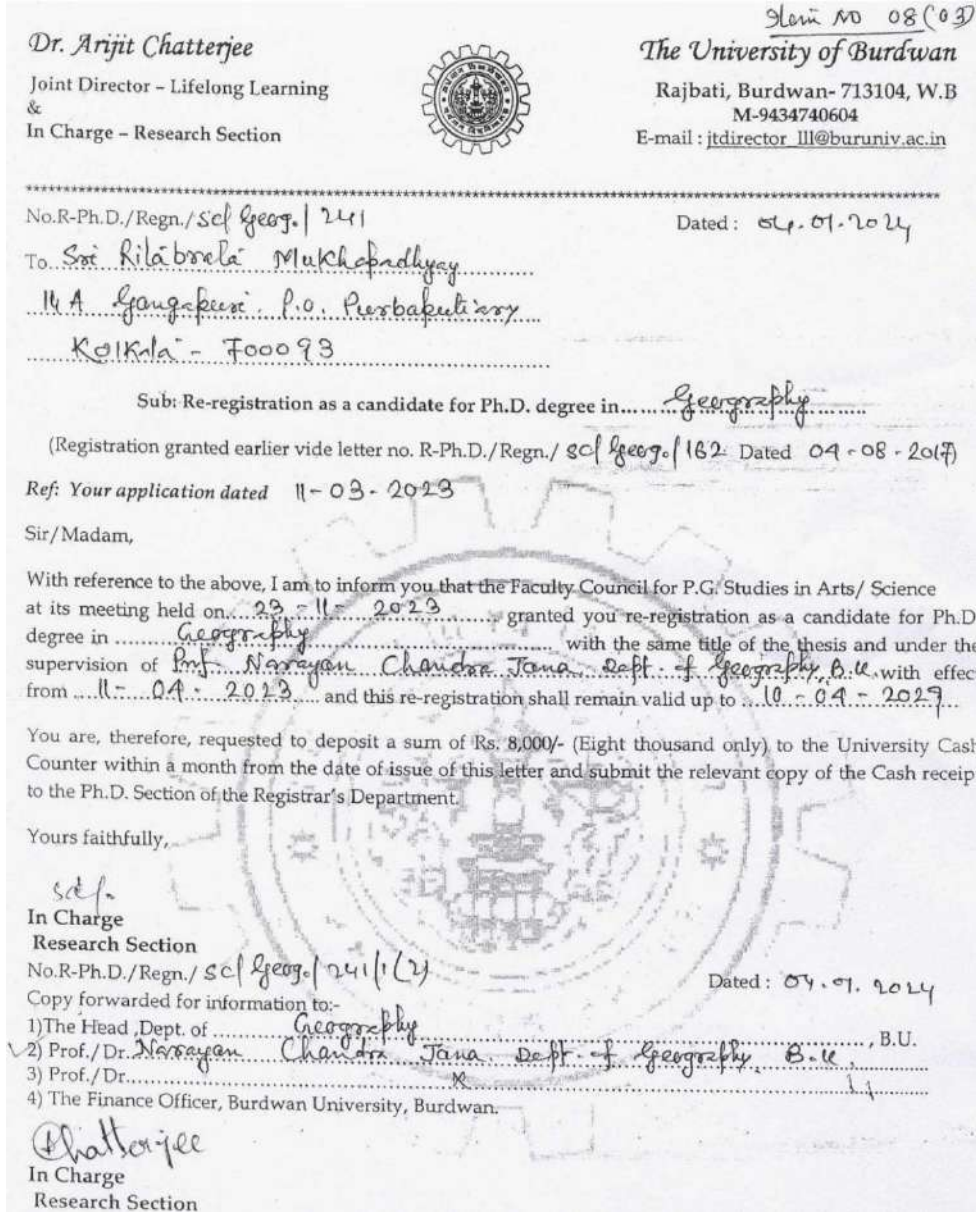 Item No 08(03)
Dr. Arijit Chatterjee
Joint Director – Lifelong Learning
&
In Charge – Research Section
The University of Burdwan
Rajbati, Burdwan- 713104, W.B
M-9434740604
E-mail : jtdirector_lll@buruniv.ac.in
No.R-Ph.D./Regn./Sc/Geog./241
Dated : 04.01.2024
To Sri Mukhopadhyay
14 A Gangapuri. P.O. Purbaputiary
Kolkata - 700093
Sub: Re-registration as a candidate for Ph.D. degree in......Geography
(Registration granted earlier vide letter no. R-Ph.D./Regn./ Sc/Geog./162 Dated 04-08-2017)
Ref: Your application dated 11-03-2023
Sir/Madam,
With reference to the above, I am to inform you that the Faculty Council for P.G. Studies in Arts/ Science
at its meeting held on 23-11-2023, granted you re-registration as a candidate for Ph.D
degree in Geography with the same title of the thesis and under the
supervision of Prof. Narayan Chandra Jana, Dept. of Geography, B.U. with effec
from 11-04-2023 and this re-registration shall remain valid up to 10-04-2029
You are, therefore, requested to deposit a sum of Rs. 8,000/- (Eight thousand only) to the University Cash
Counter within a month from the date of issue of this letter and submit the relevant copy of the Cash receip
to the Ph.D. Section of the Registrar's Department.
Yours faithfully,
sd/-
In Charge
Research Section
No.R-Ph.D./Regn./ Sc/Geog./241/1(2)
Dated : 04.01.2024
Copy forwarded for information to:-
1)The Head ,Dept. of Geography, B.U.
2) Prof./Dr. Narayan Chandra Jana, Dept. of Geography, B.U.
3) Prof./Dr. x
4) The Finance Officer, Burdwan University, Burdwan.
Chatterjee
In Charge
Research Section